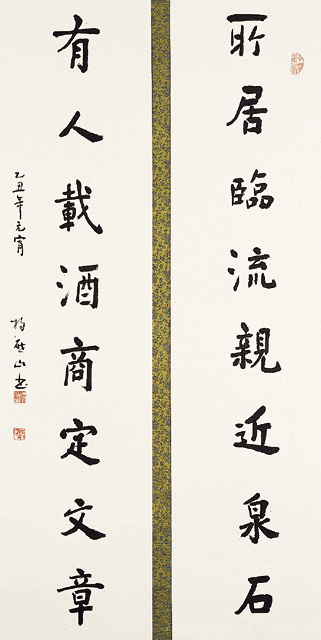 所居臨流親近泉石
有人載酒商定文章
乙丑年元宵
山書